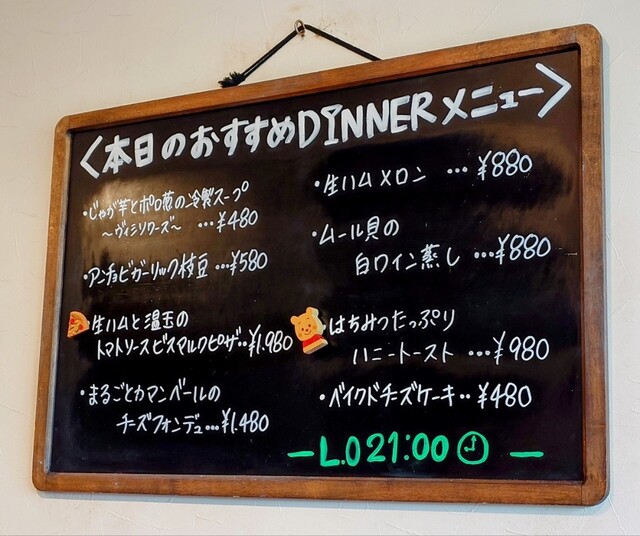 <本日のおすすめDINNERメニュー>
・じゃが芋とポロ葱の冷製スープ
～ヴィシソワーズ～ …¥480
・アンチョビガーリック枝豆…¥580
生ハムと温玉の
トマトソースビスマルクピザ‥¥1.980
・まるごとカマンベールの
チーズフォンデュ…¥1.480
・生ハムメロン …¥880
・ムール貝の
白ワイン蒸し…¥880
はちみつたっぷり
ハニートースト …¥980
・ベイクドチズケーキ‥¥480
-L.O 21:00 -